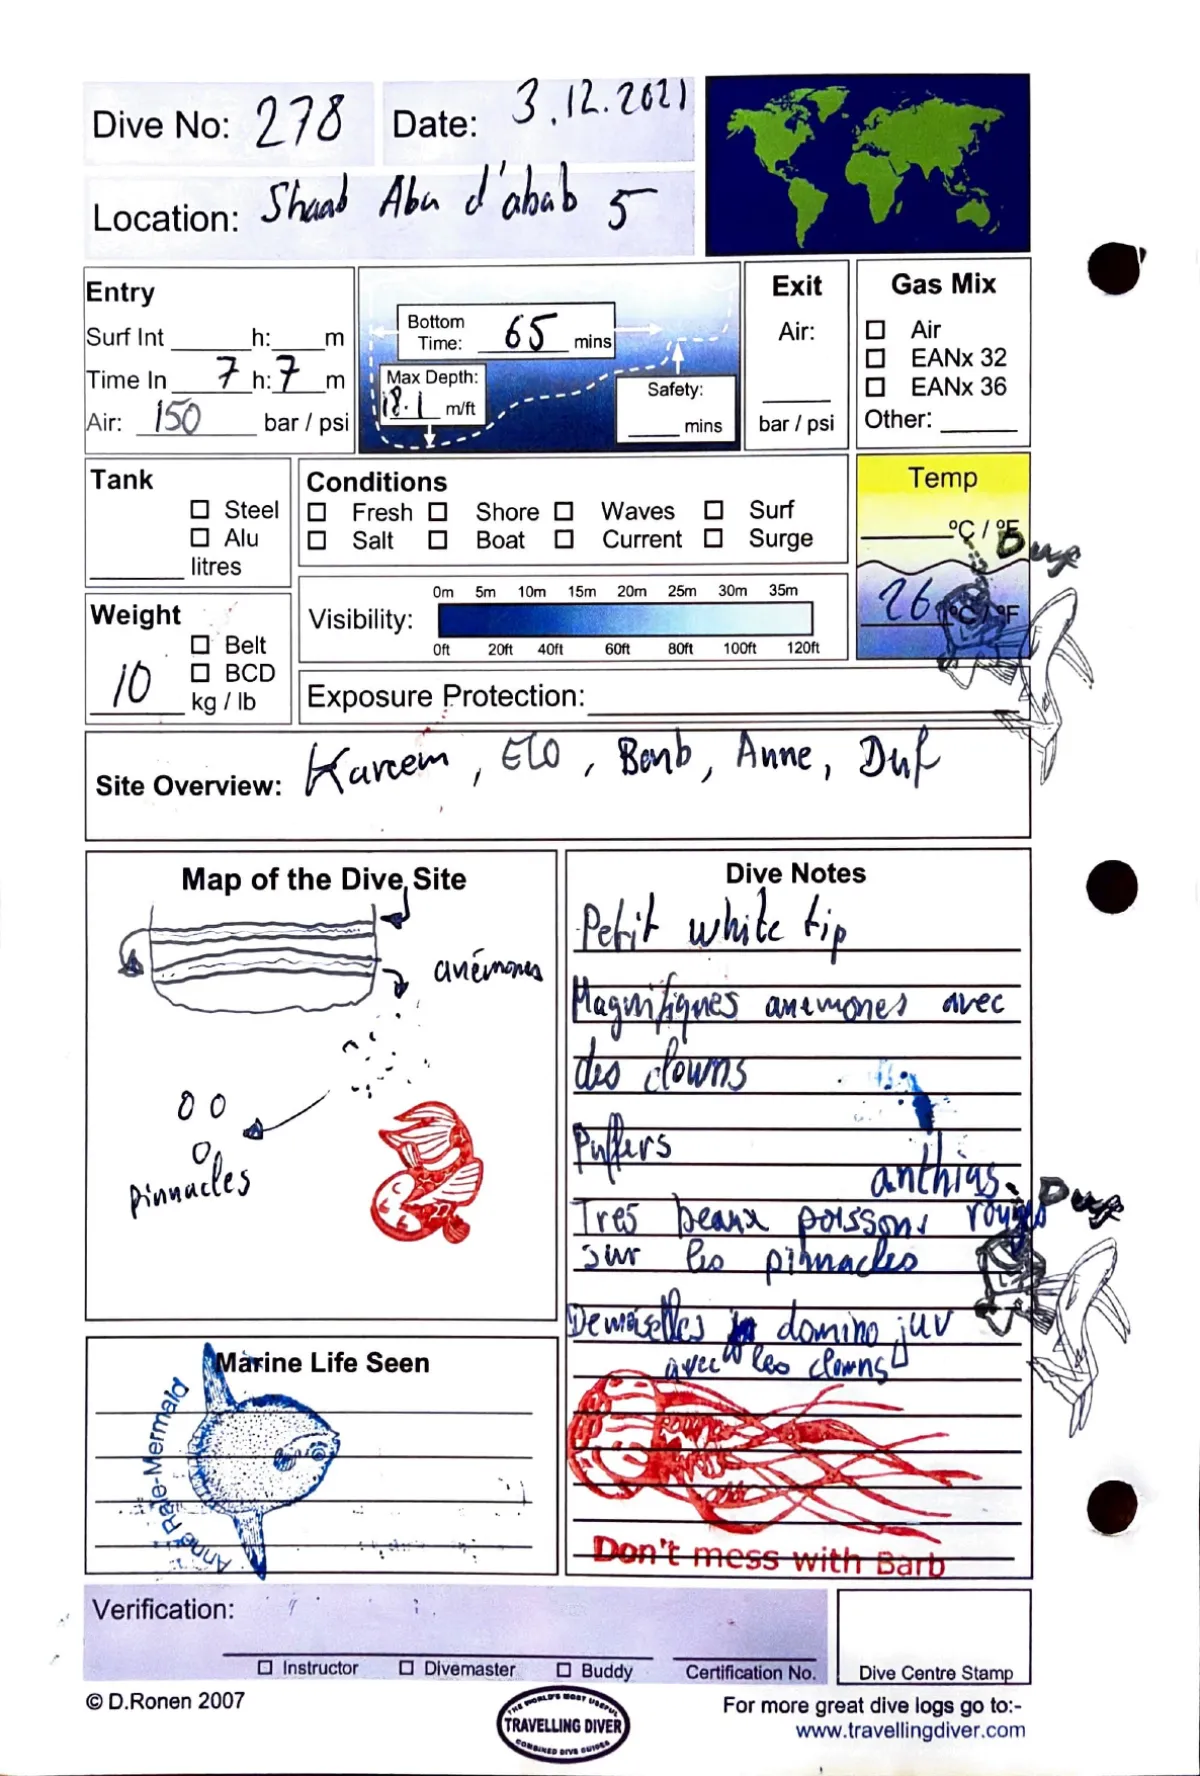 Dive No: 278 Date: 3.12.2021
Location: Shaab Abu d'abab 5
Entry
Surf Int ___ h: ___ m
Time In 7 h: 7 m
Air: 150 bar / psi
Bottom Time: 65 mins
Max Depth: 18.1 m/ft
Safety: ___ mins
Exit
Air:
___
bar / psi
Gas Mix
☐ Air
☐ EANx 32
☐ EANx 36
Other: ___
Tank
☐ Steel
☐ Alu
___ litres
Conditions
☐ Fresh ☐ Shore ☐ Waves ☐ Surf
☐ Salt ☐ Boat ☐ Current ☐ Surge
Temp
___ °C / °F
26 °C / °F
Weight
☐ Belt
☐ BCD
10 kg / lb
0m 5m 10m 15m 20m 25m 30m 35m
Visibility:
0ft 20ft 40ft 60ft 80ft 100ft 120ft
Exposure Protection:
Site Overview: Kareem, ELO, Barb, Anne, Duf
Map of the Dive Site
anémones
pinnacles
Dive Notes
Petit white tip
Magnifiques anemones avec
des clowns
Puffers
anthias
Tres beaux poissons rouges
sur les pinnacles
Demoiselles domino juv
avec les clowns
Don't mess with Barb
Marine Life Seen
Verification:
☐ Instructor ☐ Divemaster ☐ Buddy Certification No. Dive Centre Stamp
© D.Ronen 2007
THE WORLD'S MOST USEFUL
TRAVELLING DIVER
COMBINED DIVE GUIDES
For more great dive logs go to:-
www.travellingdiver.com